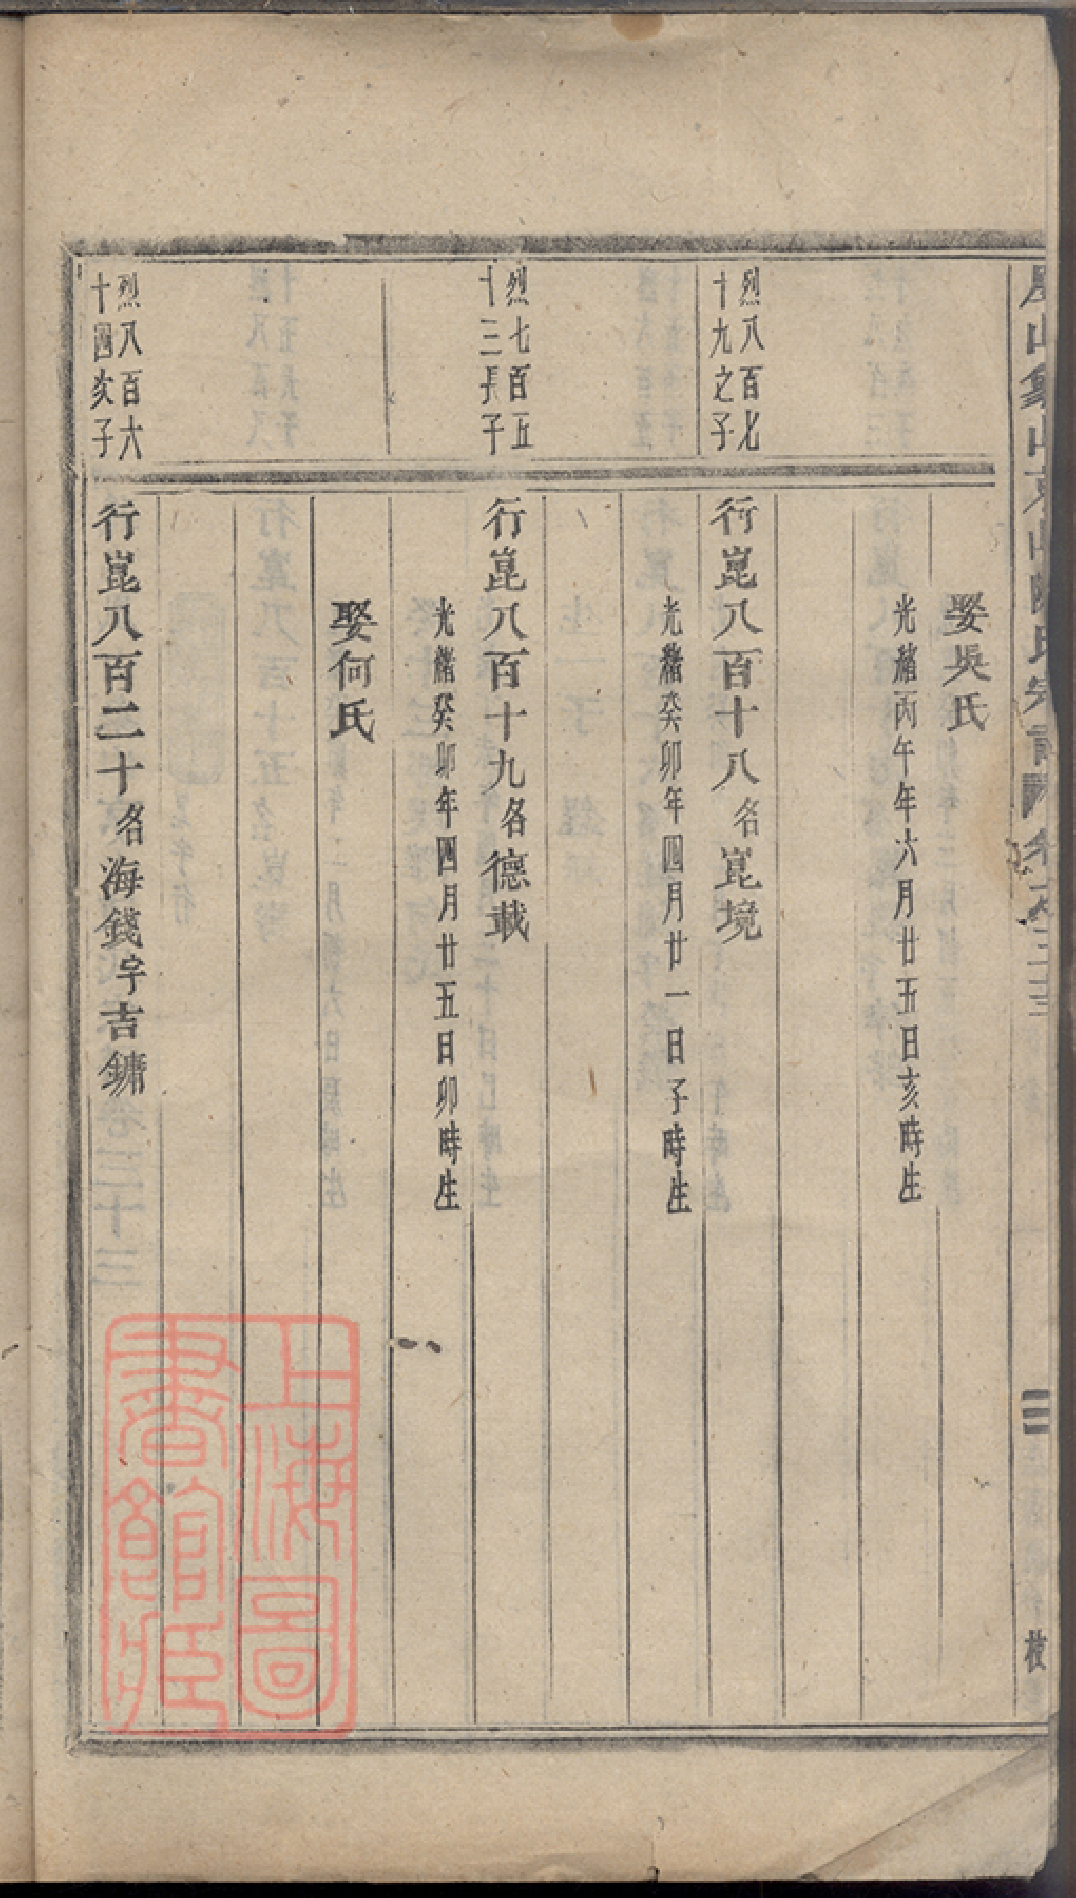 娶吳氏
光緒丙午年六月廿五日亥時生
烈八百七
十九之子
行崑八百十八名崑境
光緒癸卯年四月廿一日子時生
烈七百五
十三長子
行崑八百十九名德載
光緒癸卯年四月廿五日卯時生
娶何氏
烈八百六
十四次子
行崑八百二十名海錢字吉鏞
上海圖
書館藏